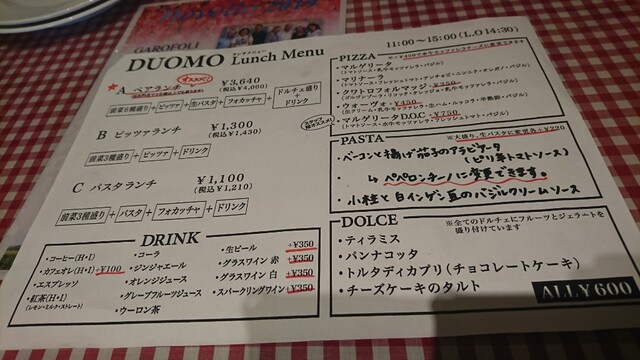 GAROFOLI
ランチメニュー
DUOMO Lunch Menu
11:00~15:00 (L.O 14:30)
オススメ!
★A ペアランチ ¥3,640
(税込¥4,000)
前菜5種盛り+ピッツァ+生パスタ+フォカッチャ+ドルチェ盛り+ドリンク
B ピッツァランチ ¥1,300
(税込¥1,430)
前菜3種盛り+ピッツァ+ドリンク
C パスタランチ ¥1,100
(税込¥1,210)
前菜3種盛り+パスタ+フォカッチャ+ドリンク
DRINK
・コーヒー(H・I)
・カフェオレ(H・I)+¥100
・エスプレッソ
・紅茶(H・I)
(レモン・ミルク・ストレート)
・コーラ
・ジンジャエール
・オレンジジュース
・グレープフルーツジュース
・ウーロン茶
・生ビール +¥350
・グラスワイン 赤 +¥350
・グラスワイン 白 +¥350
・スパークリングワイン +¥350
PIZZA
・マルゲリータ
(トマトソース・モッツァレラ・バジル)
・マリナーラ
・クワトロフォルマッジ +¥350
・ウォーヴォ +¥450
・マルゲリータD.O.C +¥750
PASTA
※大盛り、生パスタに変更各+¥220
・ベーコンと揚げ茄子のアラビアータ
(ピリ辛トマトソース)
↳ペペロンチーノに変更できます。
・小柱と白インゲン豆のバジルクリームソース
DOLCE
※全てのドルチェにフルーツとジェラートを
盛り付けています
・ティラミス
・パンナコッタ
・トルタディカプリ(チョコレートケーキ)
・チーズケーキのタルト
ALL¥600